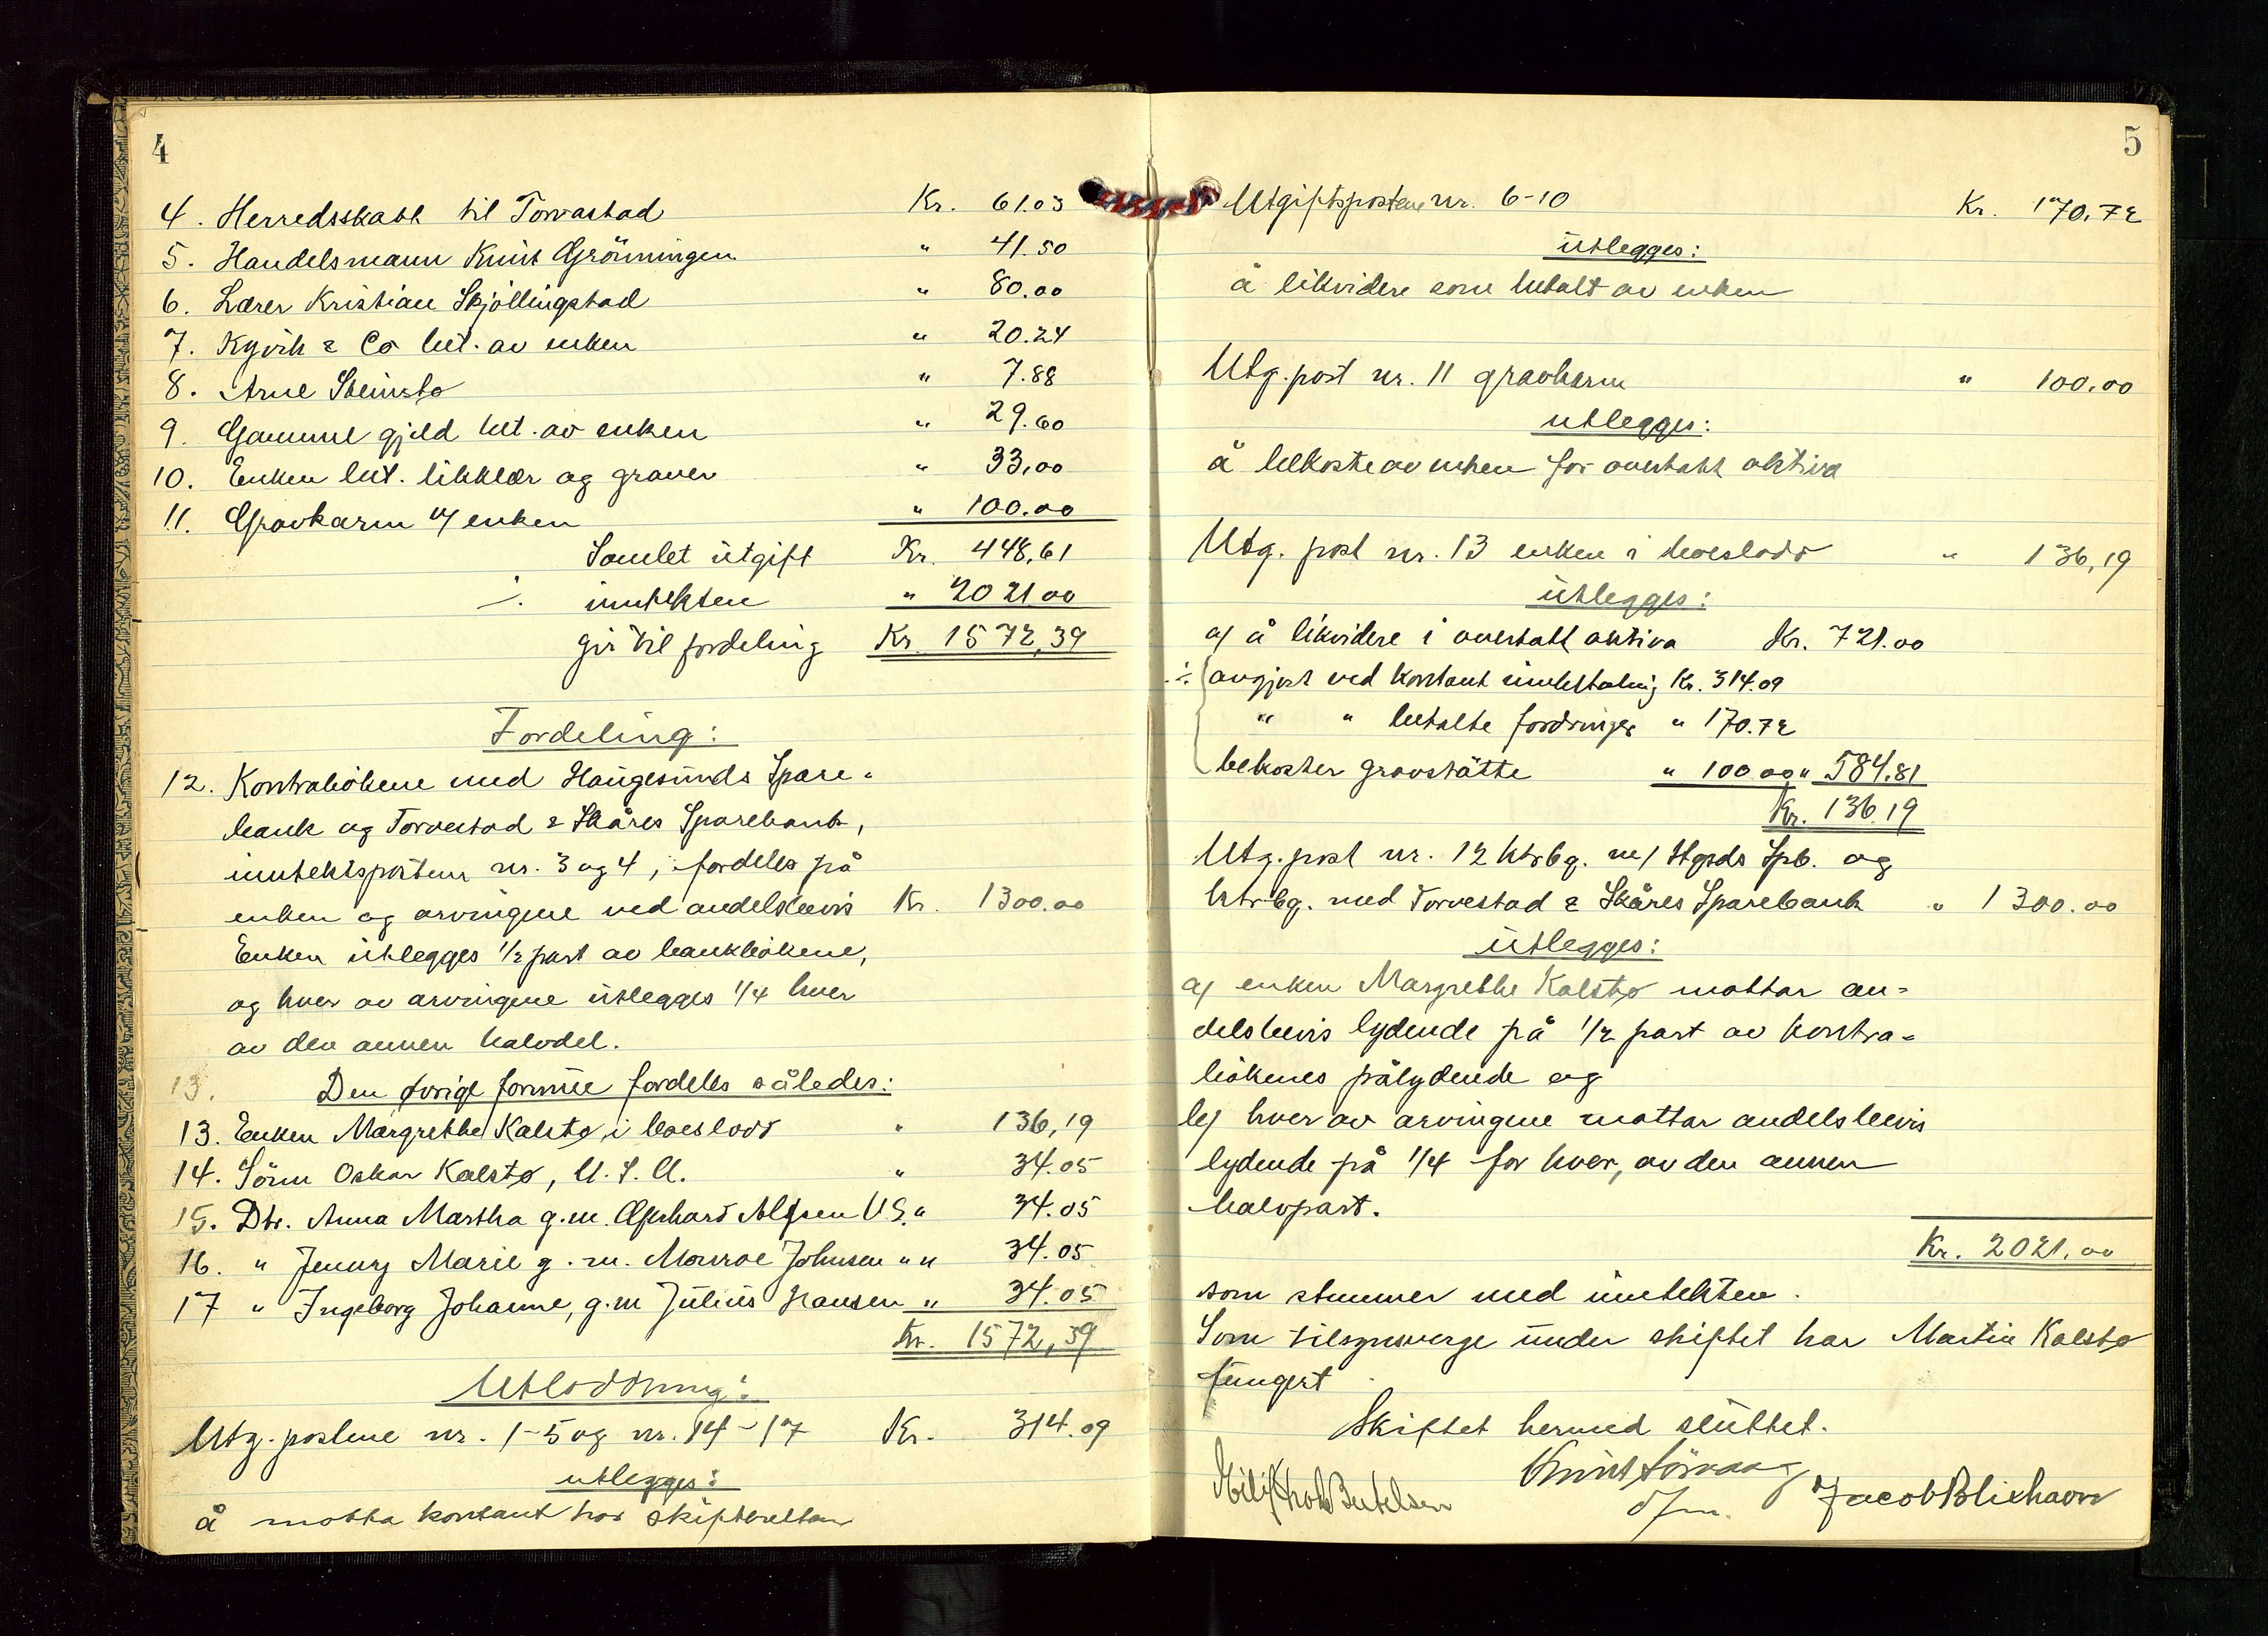 4
4. Herredsskatt til Torvastad Kr. 61.03
5. Handelsmann Knut Grönningen " 41.50
6. Lærer Kristian Skjöllingstad " 80.00
7. Kyvik & Co bet. av enken " 20.24
8. Arne Steinsto " 7.88
9. Gammel gjeld bet. av enken " 29.60
10. Enken bet. likklær og graver " 33,00
11. Gravkarm t/ enken " 100.00
Samlet utgift Kr. 448,61
÷ inntekten " 2021.00
gir til fordeling Kr. 1572,39
Fordeling:
12. Kontrabökene med Haugesunds Spare-
bank og Torvestad & Skåres Sparebank,
inntektsposten nr. 3 og 4, fordeles på
enken og arvingene ved andelsbevis Kr. 1300.00
Enken utlegges 1/2 part av bankbökene,
og hver av arvingene utlegges 1/4 hver
av den annen halvdel.
13. Den øvrige formue fordeles således:
13. Enken Margrethe Kalstø, i boeslodd " 136,19
14. Sönn Oskar Kalstø, U.S.A. " 34.05
15. Dtr. Anna Martha g.m. Gerhard Alfsen U.S. " 34.05
16. " Jenny Marie g.m. Monroe Johnsen " " 34.05
17 " Ingeborg Johanne, g.m Julius Hansen " 34.05
Kr. 1572,39
Utloddning:
Utg. postene nr. 1-5 og nr. 14-17 Kr. 314.09
utlegges:
å motta kontant hos skifteretten
5
Utgiftspostene nr. 6-10 Kr. 170.72
utlegges:
å likvidere som betalt av enken
Utg. post nr. 11 gravkarm " 100.00
utlegges:
å bekoste av enken for overtatt aktiva
Utg. post nr. 13 enken i boeslodd " 136,19
utlegges:
a/ å likvidere i overtatt aktiva Kr. 721.00
÷ avgjort ved kontant innbetaling Kr. 314.09
" " betalte fordringer " 170.72
bekoster gravstötte " 100.00 " 584.81
Kr. 136.19
Utg. post nr. 12 ktrbg. m/ Hgsds Spb. og
ktrbg. med Torvestad & Skåres Sparebank " 1300.00
utlegges:
a/ enken Margrethe Kalstø mottar an-
delsbevis lydende på 1/2 part av kontra-
bökenes pålydende og
b/ hver av arvingene mottar andelsbevis
lydende på 1/4 for hver, av den annen
halvpart.
Kr. 2021.00
som stemmer med inntekten.
Som tilsynsverge under skiftet har Martin Kalstø
fungert
Skiftet hermed sluttet.
Knut
Jacob Blikhavn